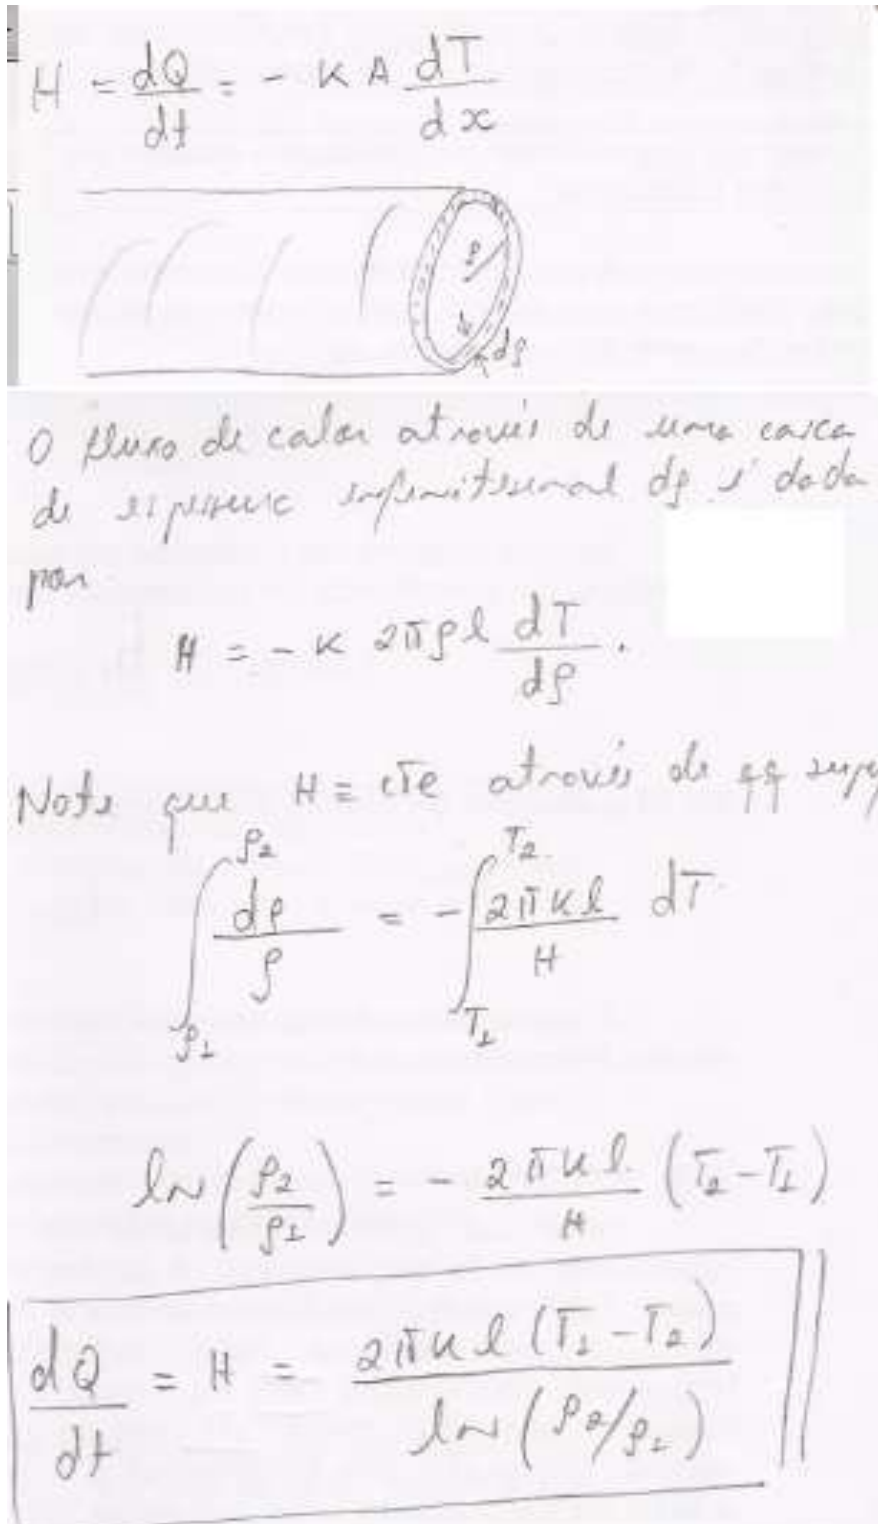 H = dQ/dt = - K A dT/dx
ρ
dρ
O fluxo de calor através de uma casca
de espessura infinitesimal dρ é dada
por
H = - K 2πρl dT/dρ .
Note que H ≡ cte através de qq sup
∫_{ρ1}^{ρ2} dρ/ρ = - ∫_{T1}^{T2} 2πKl/H dT
ln (ρ2/ρ1) = - 2πKl/H (T2 - T1)
dQ/dt = H = 2πKl (T1 - T2) / ln (ρ2/ρ1)